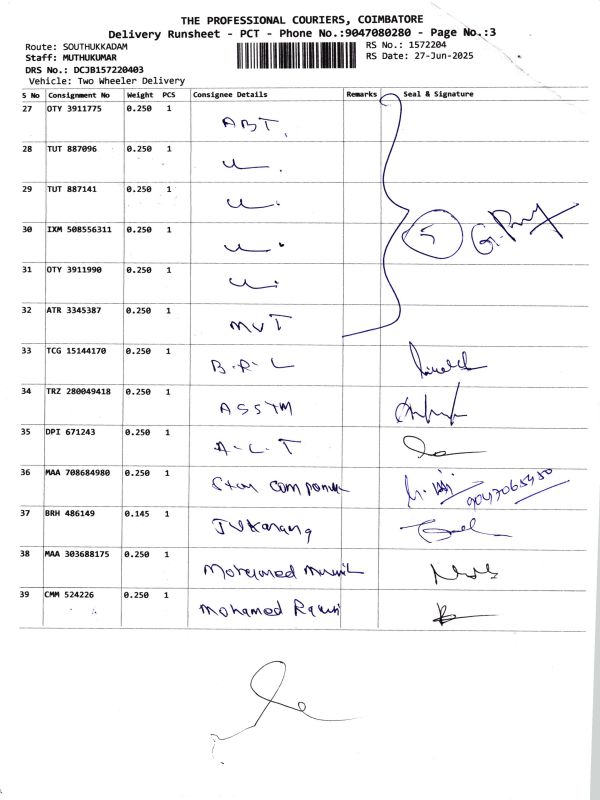 THE PROFESSIONAL COURIERS, COIMBATORE
Delivery Runsheet - PCT - Phone No.:9047080280 - Page No.:3
Route: SOUTHUKKADAM RS No.: 1572204
Staff: MUTHUKUMAR RS Date: 27-Jun-2025
DRS No.: DCJB157220403
Vehicle: Two Wheeler Delivery
S No Consignment No Weight PCS Consignee Details Remarks Seal & Signature
27 OTY 3911775 0.250 1 ABT.
28 TUT 887096 0.250 1
29 TUT 887141 0.250 1
30 IXM 508556311 0.250 1 5
31 OTY 3911990 0.250 1
32 ATR 3345387 0.250 1 MVT
33 TCG 15144170 0.250 1 B.R.L
34 TRZ 280049418 0.250 1 ASSTM
35 DPI 671243 0.250 1 A.L.T
36 MAA 708684980 0.250 1 Star 9047065450
37 BRH 486149 0.145 1
38 MAA 303688175 0.250 1 Mohamed
39 CMM 524226 0.250 1 Mohamed